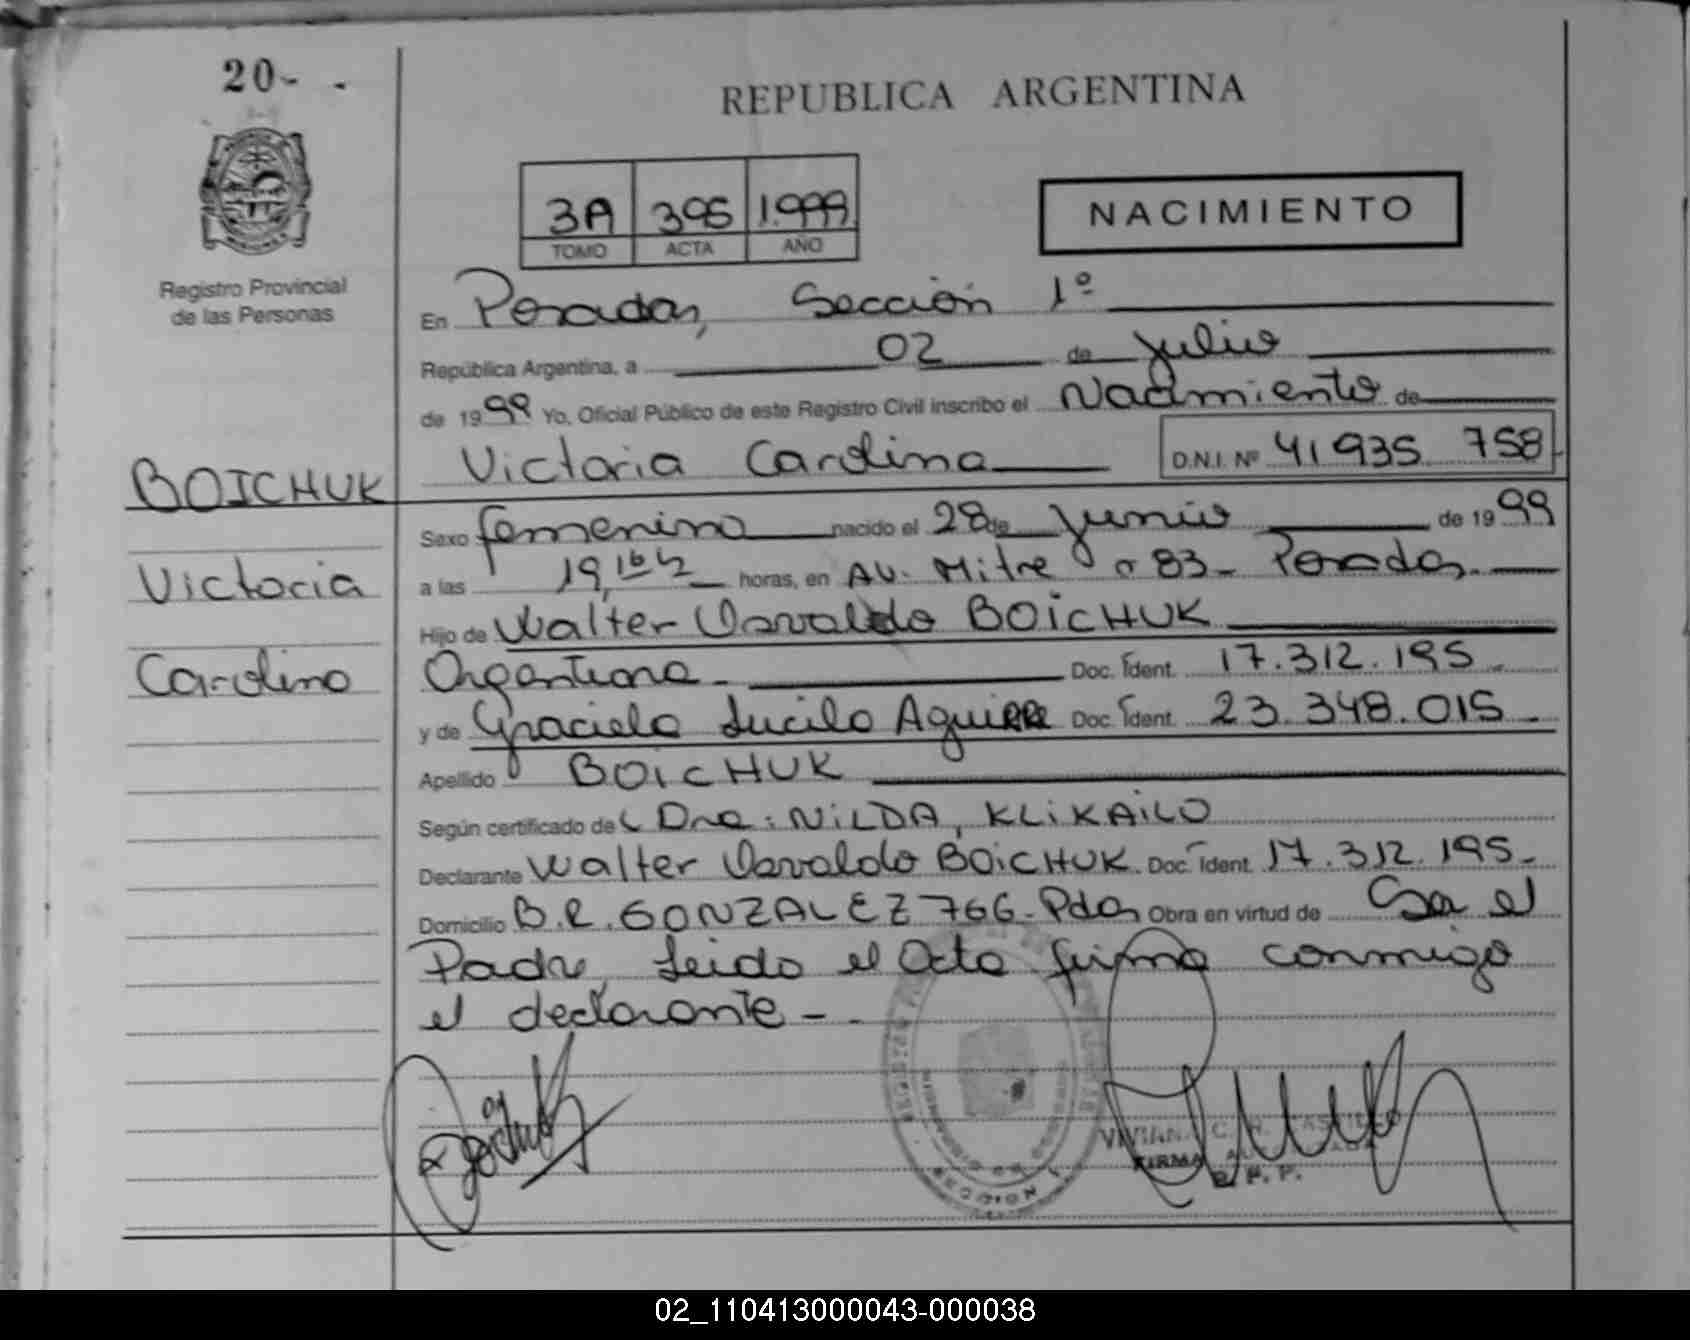 20-
REPUBLICA ARGENTINA
3A 395 1.999
TOMO ACTA AÑO
NACIMIENTO
Registro Provincial
de las Personas
En Posadas, Sección 1º
República Argentina, a 02 de Julio
de 1999 Yo, Oficial Público de este Registro Civil inscribo el Nacimiento de
Victoria Carolina D.N.I. Nº 41 935 758
BOICHUK
Victoria
Carolina
Sexo femenino nacido el 28 de Junio de 1999
a las 19,16 horas, en AV. Mitre 83 - Posadas.
Hijo de Walter Osvaldo BOICHUK
Argentina - Doc. Ident. 17.312.195
y de Graciela Lucila Aguirre Doc. Ident. 23.348.015 -
Apellido BOICHUK
Según certificado de Dra: NILDA, KLIKAILO
Declarante Walter Osvaldo BOICHUK. Doc. Ident. 17.312.195.-
Domicilio B.R. GONZALEZ 766 - Pdas Obra en virtud de Ser el
Padre, Leido el Acta firma conmigo
el declarante - .
SECCION 1
VIVIANA C.
FIRMA
R. P. P.
02_110413000043-000038